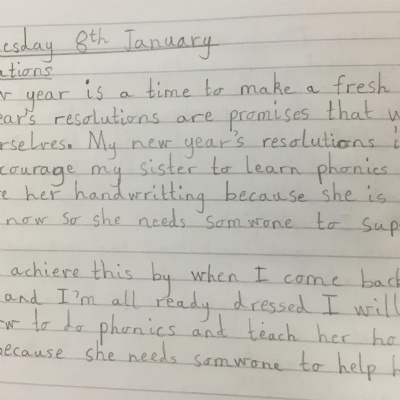 esday 8th January
ations
w year is a time to make a fresh
ear's resolutions are promises that w
rselves. My new year's resolutions i
courage my sister to learn phonics
e her handwritting because she is
now so she needs somwone to sup
achieve this by when I come back
and I'm all ready dressed I will
w to do phonics and teach her ho
because she needs somwone to help h